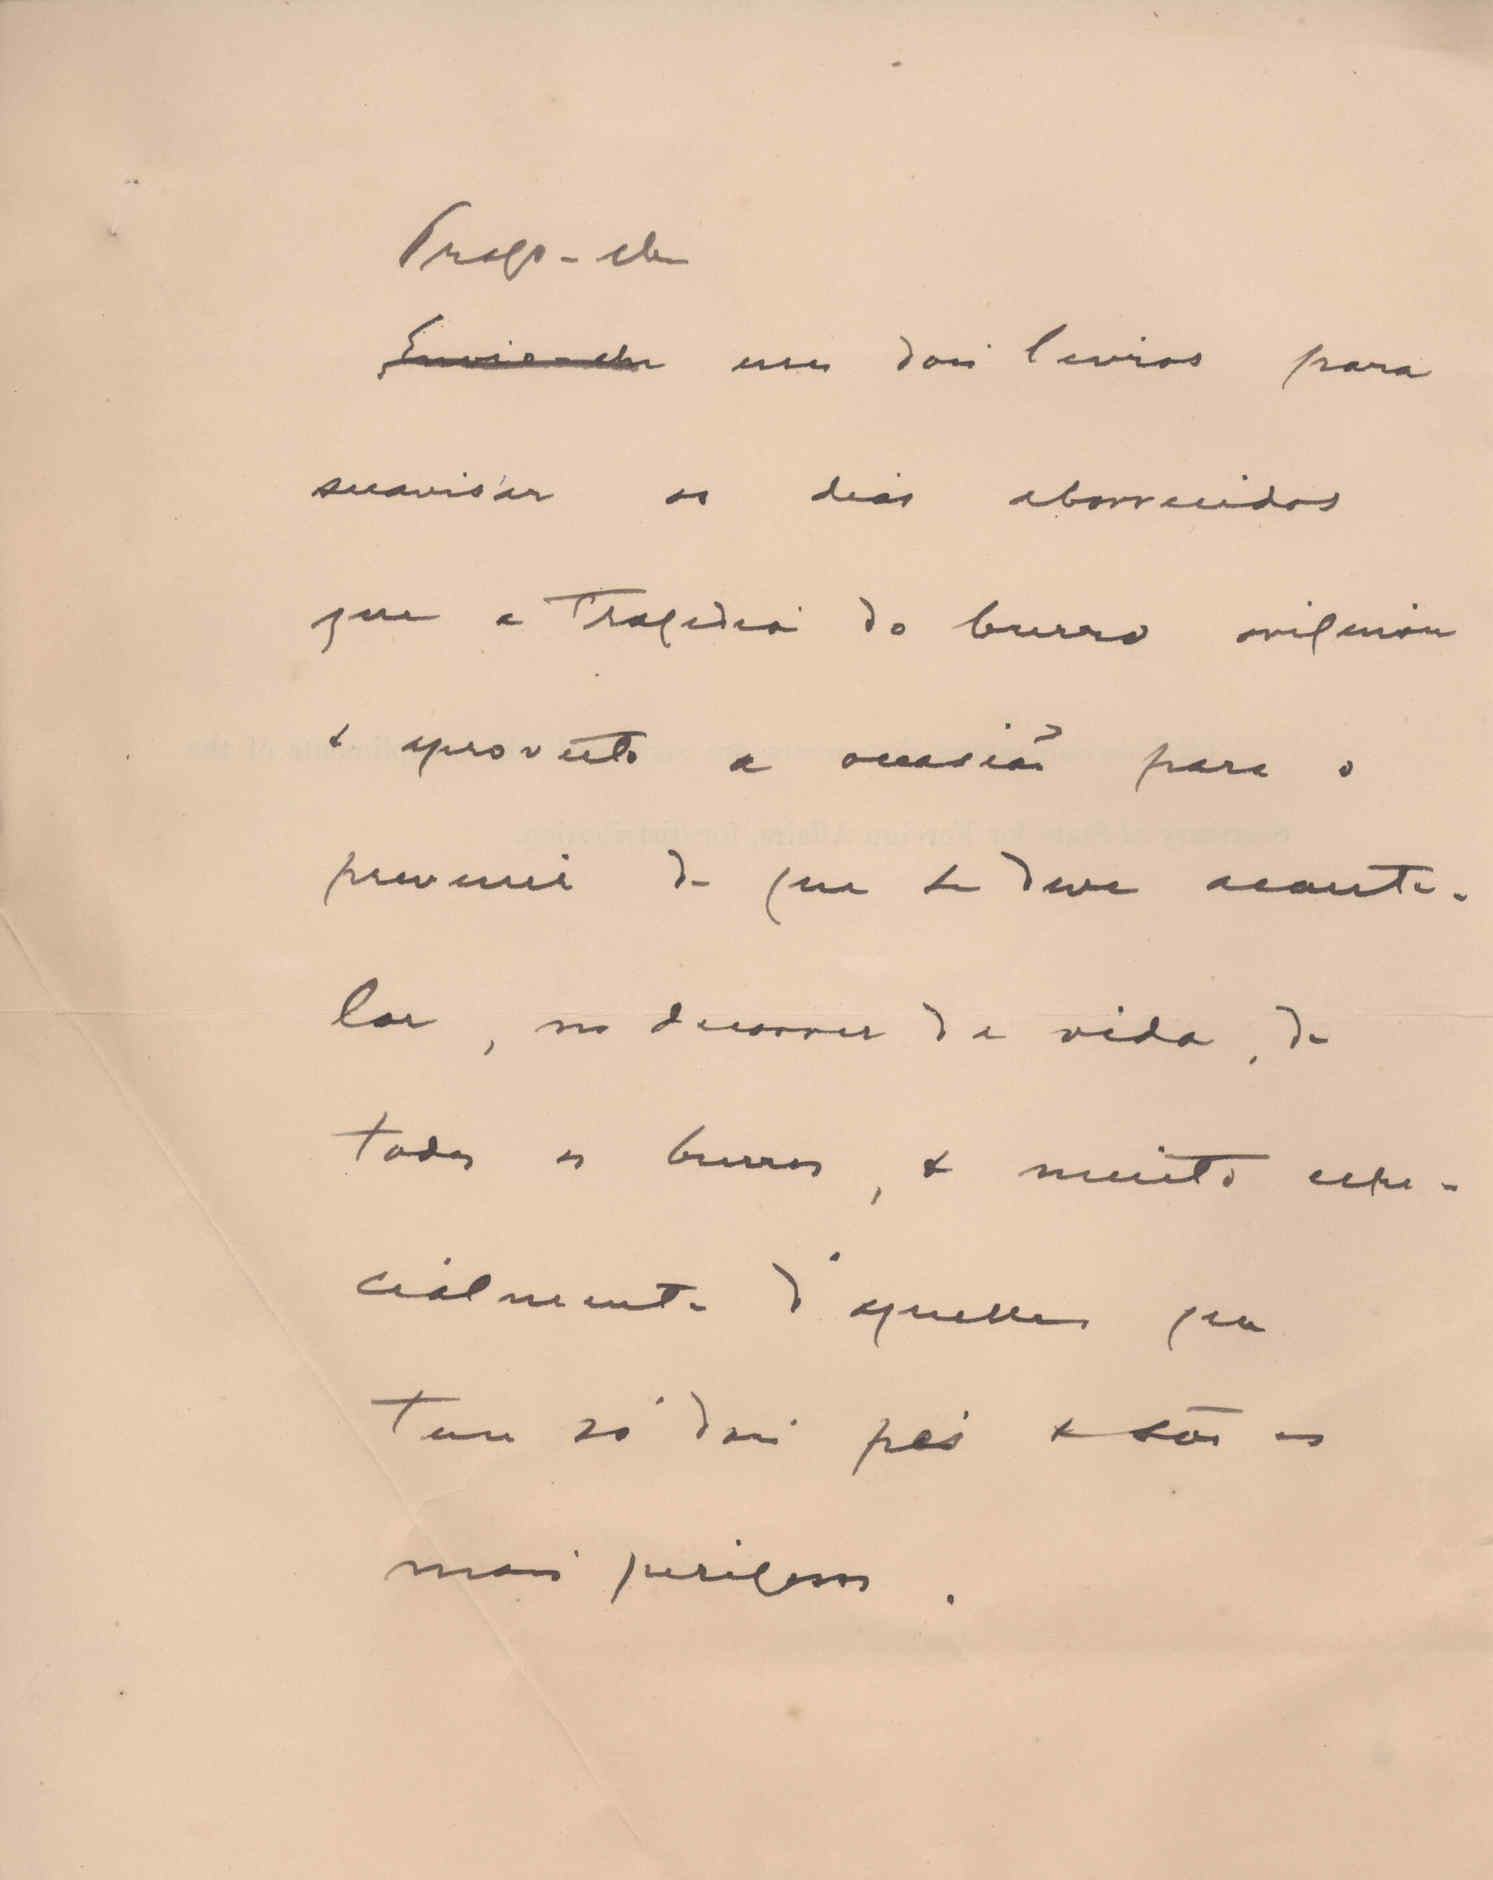 Trago-lhe
Envio-lhe uns dois livros para
suavisar os dias aborrecidos
que a Tragedia do burro originou
e aproveito a occasião para o
prevenir de que se deve acaute-
lar, no decorrer da vida, de
todos os burros, e muito espe-
cialmente d'aquelles que
tem só dois pés e são os
mais perigosos.